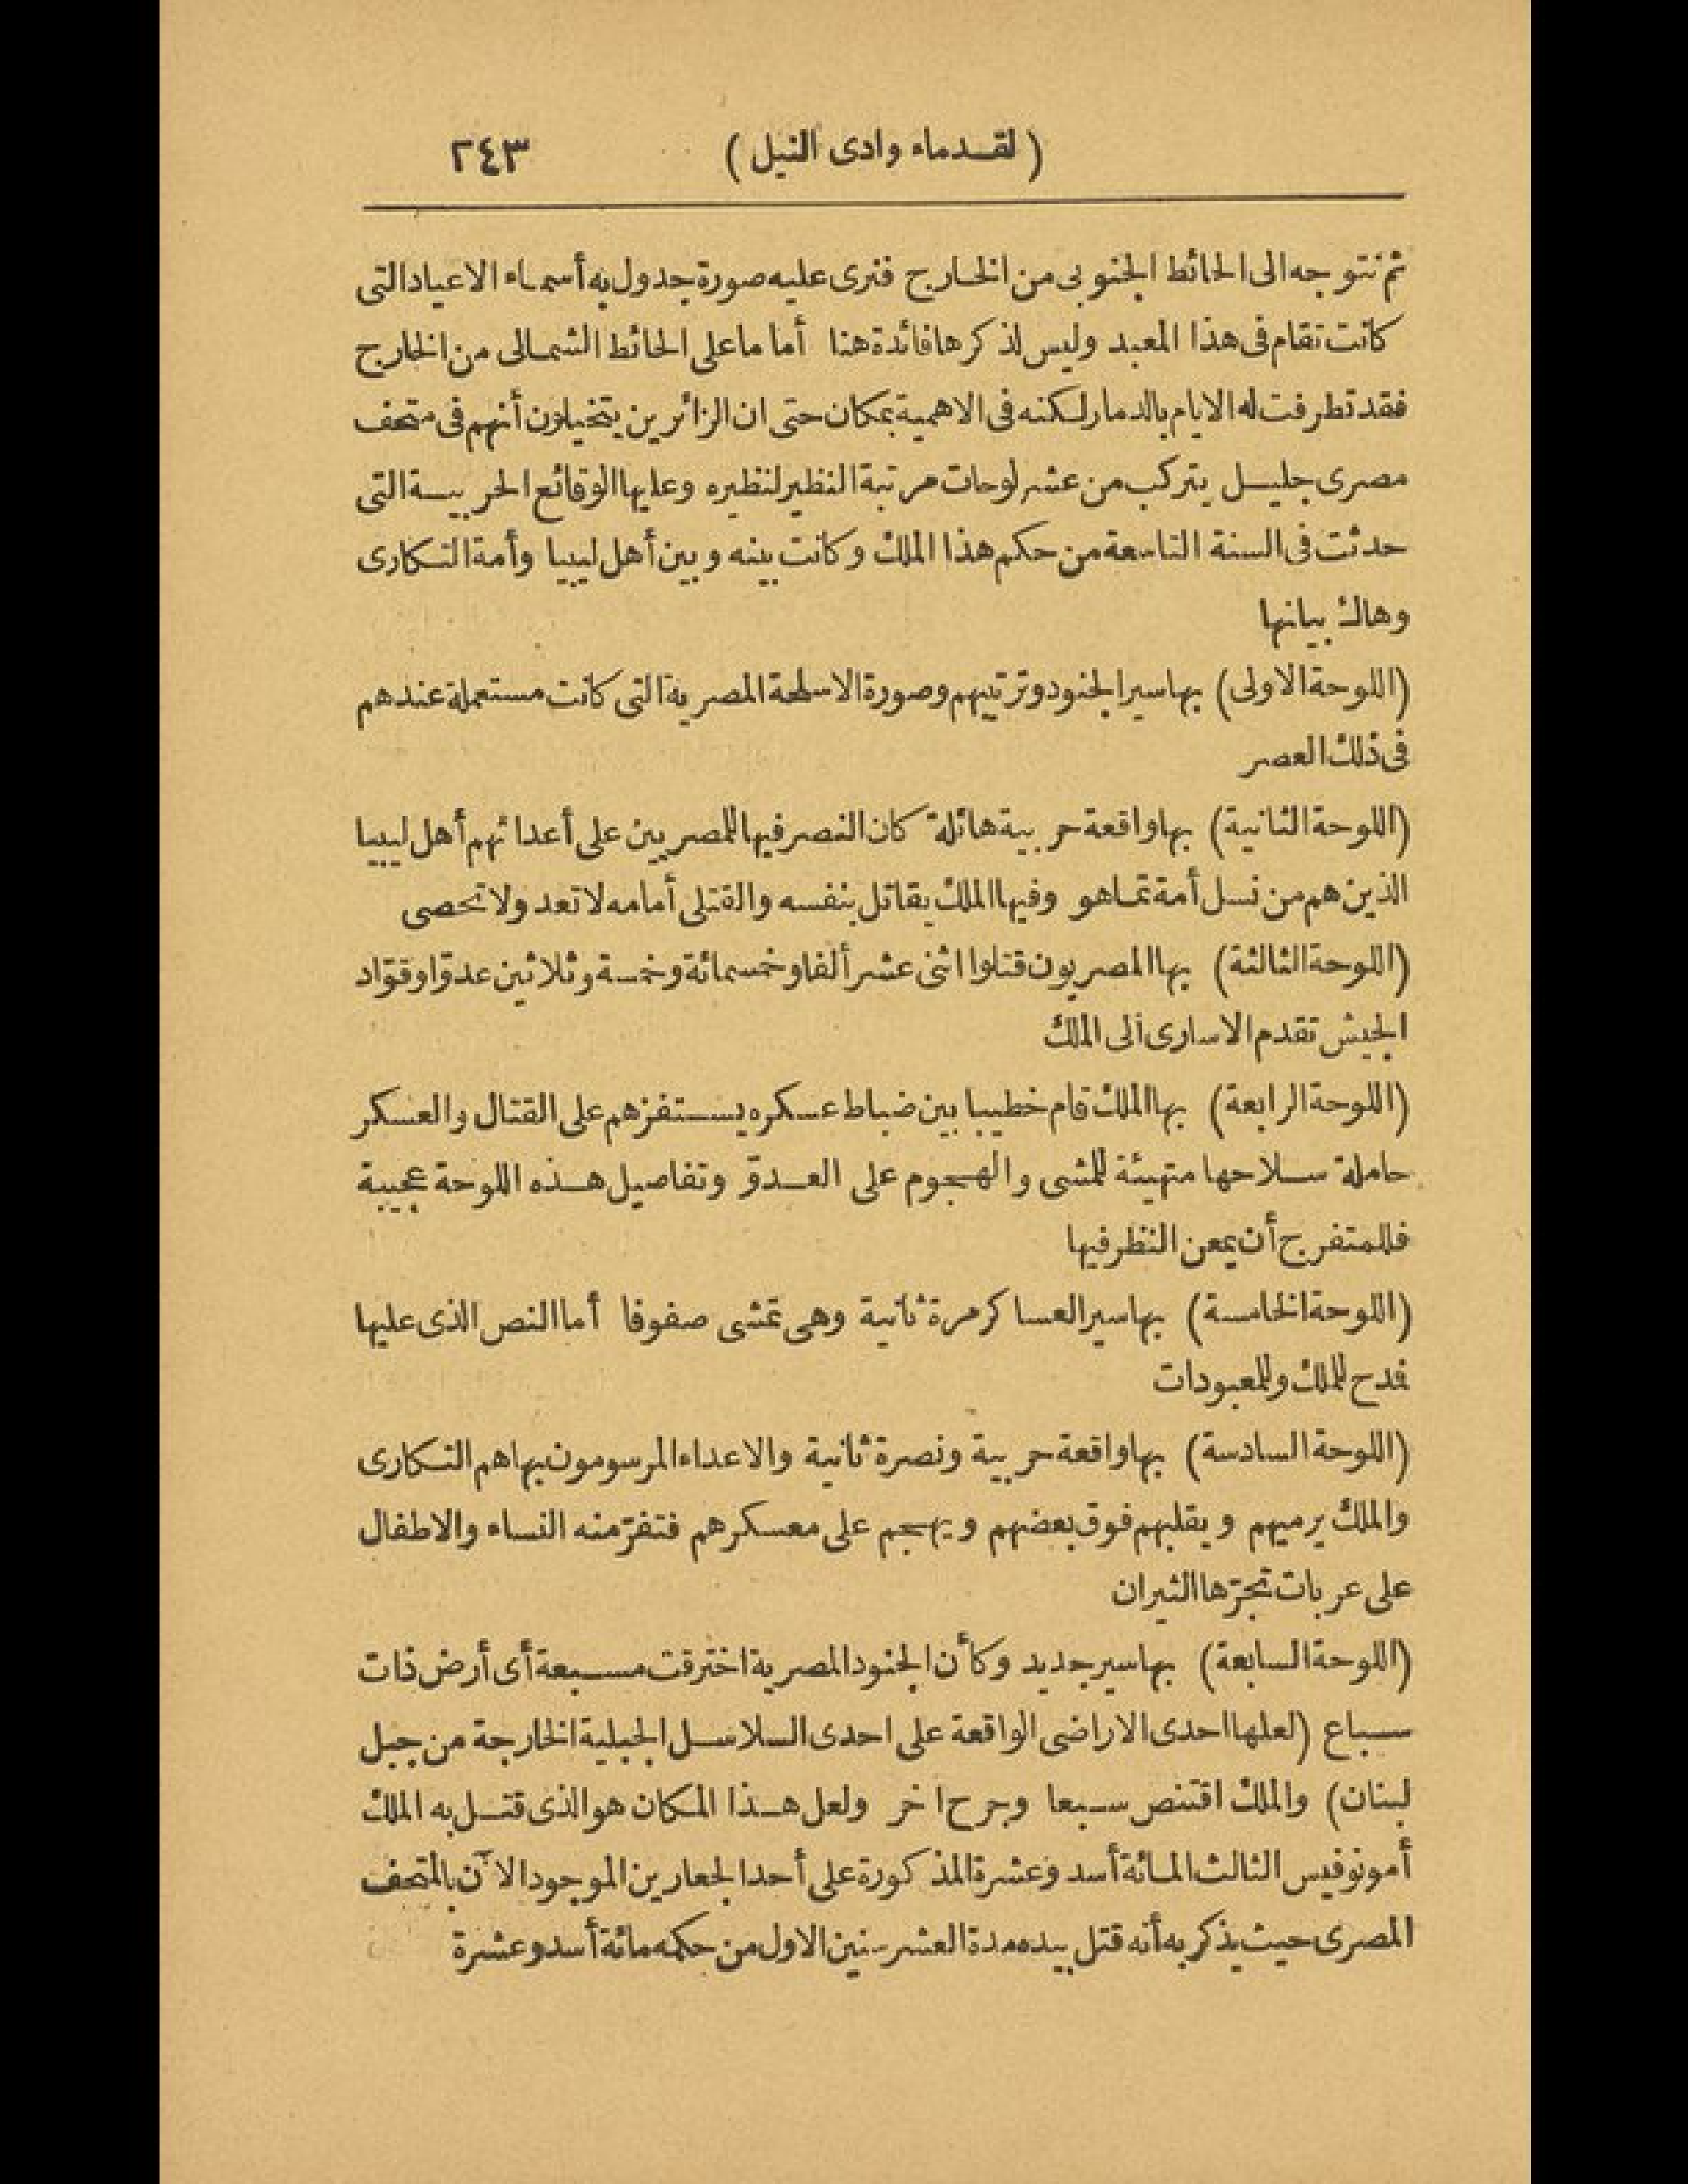 (لقدماء وادى النيل) ٢٤٣
ثم نتوجه الى الحائط الجنوبى من الخارج فنرى عليه صورة جدول به أسماء الاعياد التى
كانت تقام فى هذا المعبد وليس لذكرها فائدة هنا أما ما على الحائط الشمالى من الخارج
فقد تطرفت له الايام بالدمار لكنه فى الاهمية بمكان حتى ان الزائرين يتخيلون أنهم فى متحف
مصرى جليل يتركب من عشر لوحات مرتبة النظير لنظيره وعليها الوقائع الحربية التى
حدثت فى السنة التاسعة من حكم هذا الملك وكانت بينه وبين أهل ليبيا وأمة التكارى
وهاك بيانها
(اللوحة الاولى) بها سير الجنود وترتيبهم وصورة الاسلحة المصرية التى كانت مستعملة عندهم
فى ذلك العصر
(اللوحة الثانية) بها واقعة حربية هائلة كان النصر فيها للمصريين على أعدائهم أهل ليبيا
الذين هم من نسل أمة تماهو وفيها الملك يقاتل بنفسه والقتلى أمامه لا تعد ولا تحصى
(اللوحة الثالثة) بها المصريون قتلوا اثنى عشر ألفا وخمسمائة وخمسة وثلاثين عدوّا وقوّاد
الجيش تقدم الاسارى الى الملك
(اللوحة الرابعة) بها الملك قام خطيبا بين ضباط عسكره يستفزهم على القتال والعسكر
حاملة سلاحها متهيئة للمشى والهجوم على العدوّ وتفاصيل هذه اللوحة عجيبة
فللمتفرج أن يمعن النظر فيها
(اللوحة الخامسة) بها سير العساكر مرة ثانية وهى تمشى صفوفا أما النص الذى عليها
فمدح للملك وللمعبودات
(اللوحة السادسة) بها واقعة حربية ونصرة ثانية والاعداء المرسومون بها هم التكارى
والملك يرميهم ويقلبهم فوق بعضهم ويهجم على معسكرهم فتفرّ منه النساء والاطفال
على عربات تجرّها الثيران
(اللوحة السابعة) بها سير جديد وكأن الجنود المصرية اخترقت مسبعة أى أرض ذات
سباع (لعلها احدى الاراضى الواقعة على احدى السلاسل الجبلية الخارجة من جبل
لبنان) والملك اقتنص سبعا وجرح اخر ولعل هذا المكان هو الذى قتل به الملك
أمونوفيس الثالث المائة أسد وعشرة المذكورة على أحد الجعارين الموجود الآن بالمتحف
المصرى حيث يذكر به أنه قتل بيده مدة العشر سنين الاول من حكمه مائة أسد وعشرة